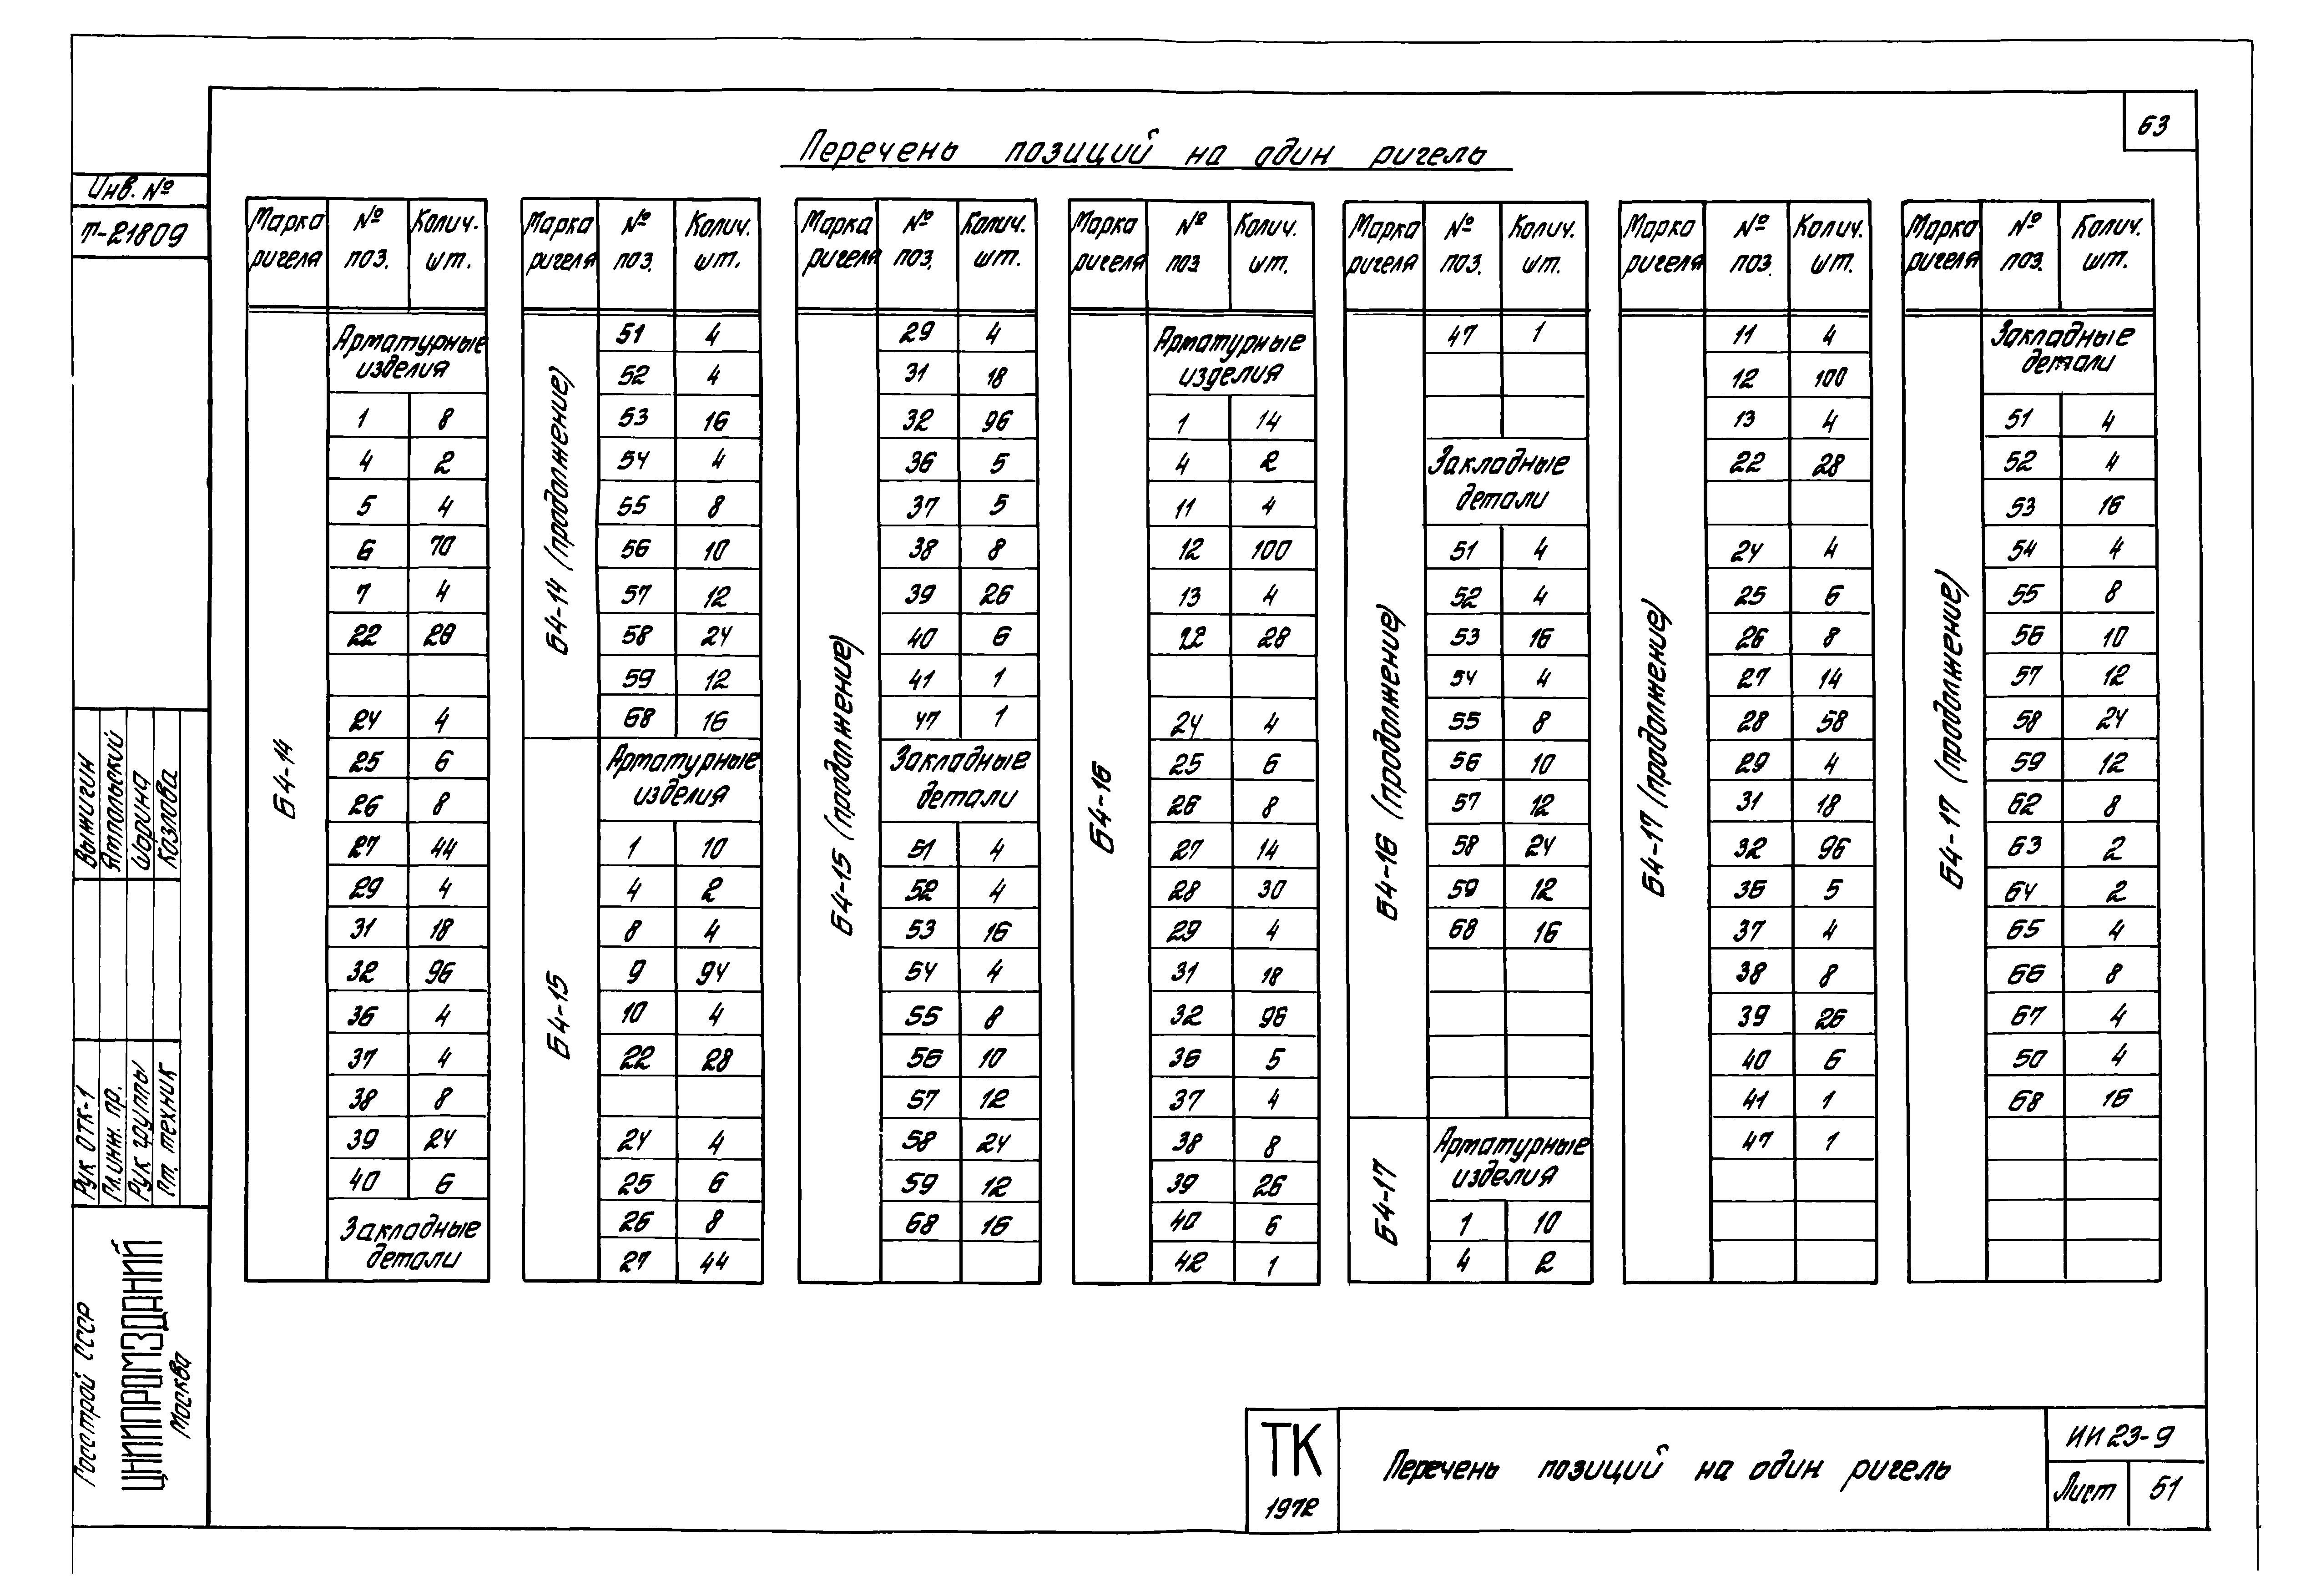 63
Перечень позиций на один ригель
Инв. №
Т-21809
Марка ригеля | № поз. | Колич. шт.
Б4-14
Арматурные изделия
1 8
4 2
5 4
6 70
7 4
22 28
24 4
25 6
26 8
27 44
29 4
31 18
32 96
36 4
37 4
38 8
39 24
40 6
Закладные детали
Марка ригеля | № поз. | Колич. шт.
Б4-14 (продолжение)
51 4
52 4
53 16
54 4
55 8
56 10
57 12
58 24
59 12
68 16
Б4-15
Арматурные изделия
1 10
4 2
8 4
9 94
10 4
22 28
24 4
25 6
26 8
27 44
Марка ригеля | № поз. | Колич. шт.
Б4-15 (продолжение)
29 4
31 18
32 96
36 5
37 5
38 8
39 26
40 6
41 1
47 1
Закладные детали
51 4
52 4
53 16
54 4
55 8
56 10
57 12
58 24
59 12
68 16
Марка ригеля | № поз | Колич. шт.
Б4-16
Арматурные изделия
1 14
4 2
11 4
12 100
13 4
22 28
24 4
25 6
26 8
27 14
28 30
29 4
31 18
32 96
36 5
37 4
38 8
39 26
40 6
42 1
Марка ригеля | № поз. | Колич. шт.
Б4-16 (продолжение)
47 1
Закладные детали
51 4
52 4
53 16
54 4
55 8
56 10
57 12
58 24
59 12
68 16
Б4-17
Арматурные изделия
1 10
4 2
Марка ригеля | № поз. | Колич. шт.
Б4-17 (продолжение)
11 4
12 100
13 4
22 28
24 4
25 6
26 8
27 14
28 58
29 4
31 18
32 96
36 5
37 4
38 8
39 26
40 6
41 1
47 1
Марка ригеля | № поз. | Колич. шт.
Б4-17 (продолжение)
Закладные детали
51 4
52 4
53 16
54 4
55 8
56 10
57 12
58 24
59 12
62 8
63 2
64 2
65 4
66 8
67 4
50 4
68 16
Рук ОТК-1 Выжигин
Гл. инж. пр. Ямпольский
Рук группы Шорина
Ст. техник Козлова
Госстрой СССР
ЦНИИПРОМЗДАНИЙ
Москва
ТК
1972
Перечень позиций на один ригель
ИИ 23-9
Лист 51